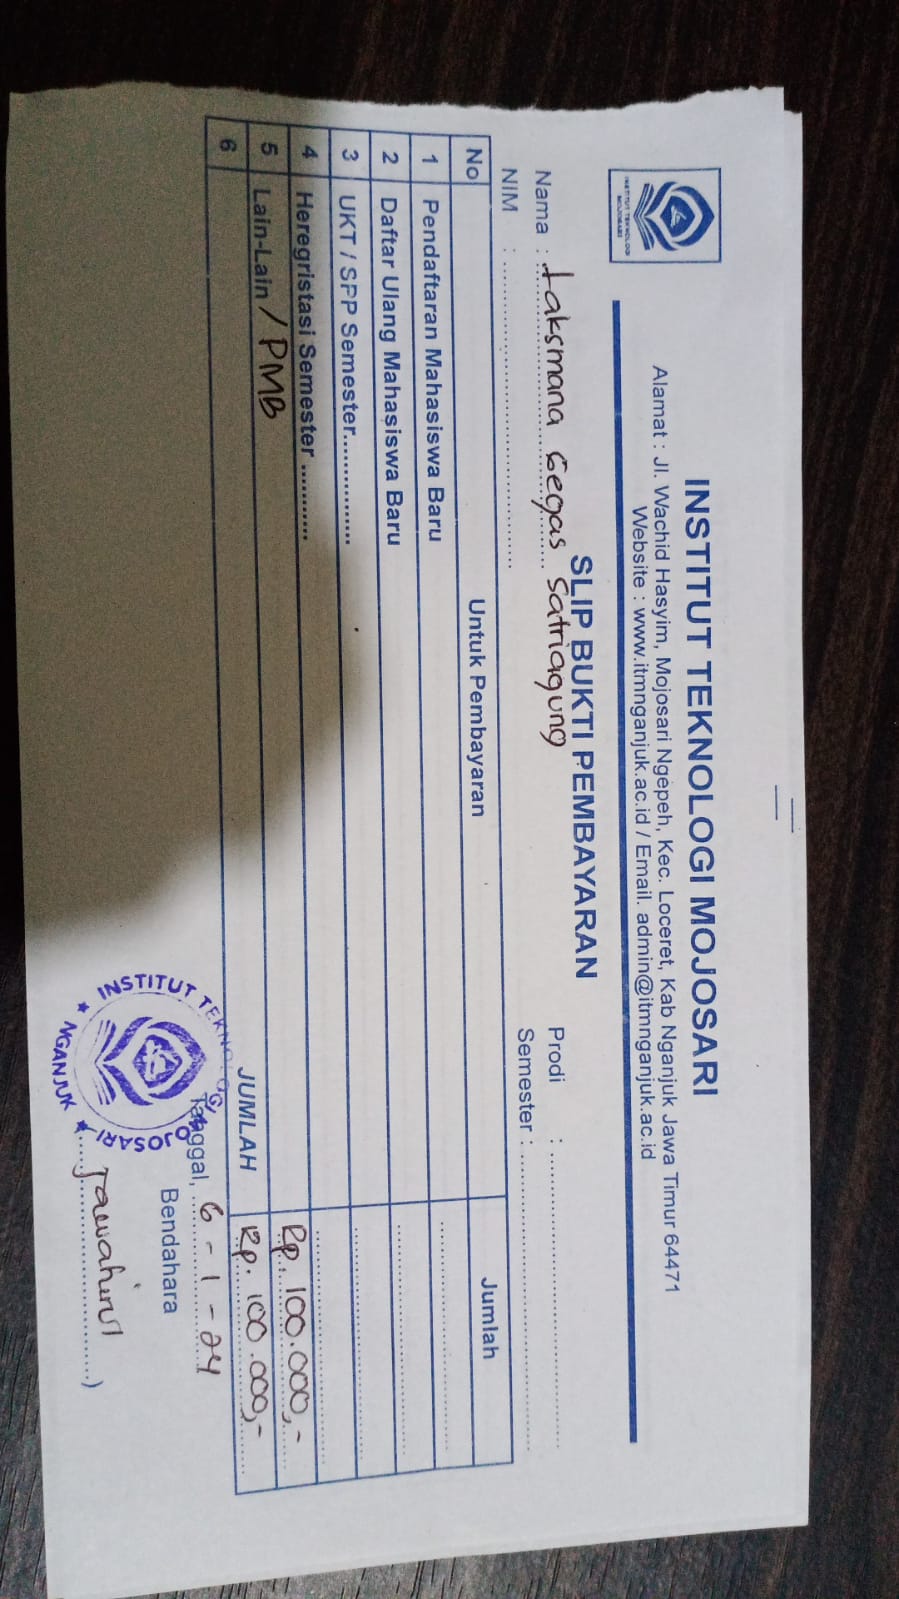 INSTITUT TEKNOLOGI
MOJOSARI
INSTITUT TEKNOLOGI MOJOSARI
Alamat : Jl. Wachid Hasyim, Mojosari Ngepeh, Kec. Loceret, Kab Nganjuk Jawa Timur 64471
Website : www.itmnganjuk.ac.id / Email. admin@itmnganjuk.ac.id
SLIP BUKTI PEMBAYARAN
Nama : Laksmana Gegas Satriagung Prodi :
NIM : Semester :
No Untuk Pembayaran Jumlah
1 Pendaftaran Mahasiswa Baru
2 Daftar Ulang Mahasiswa Baru
3 UKT / SPP Semester..............
4 Heregristasi Semester ..........
5 Lain-Lain / PMB Rp. 100.000,-
6 JUMLAH Rp. 100.000,-
Tanggal, 6 - 1 - 24
Bendahara
INSTITUT TEKNOLOGI MOJOSARI
NGANJUK
(Jawahirul)